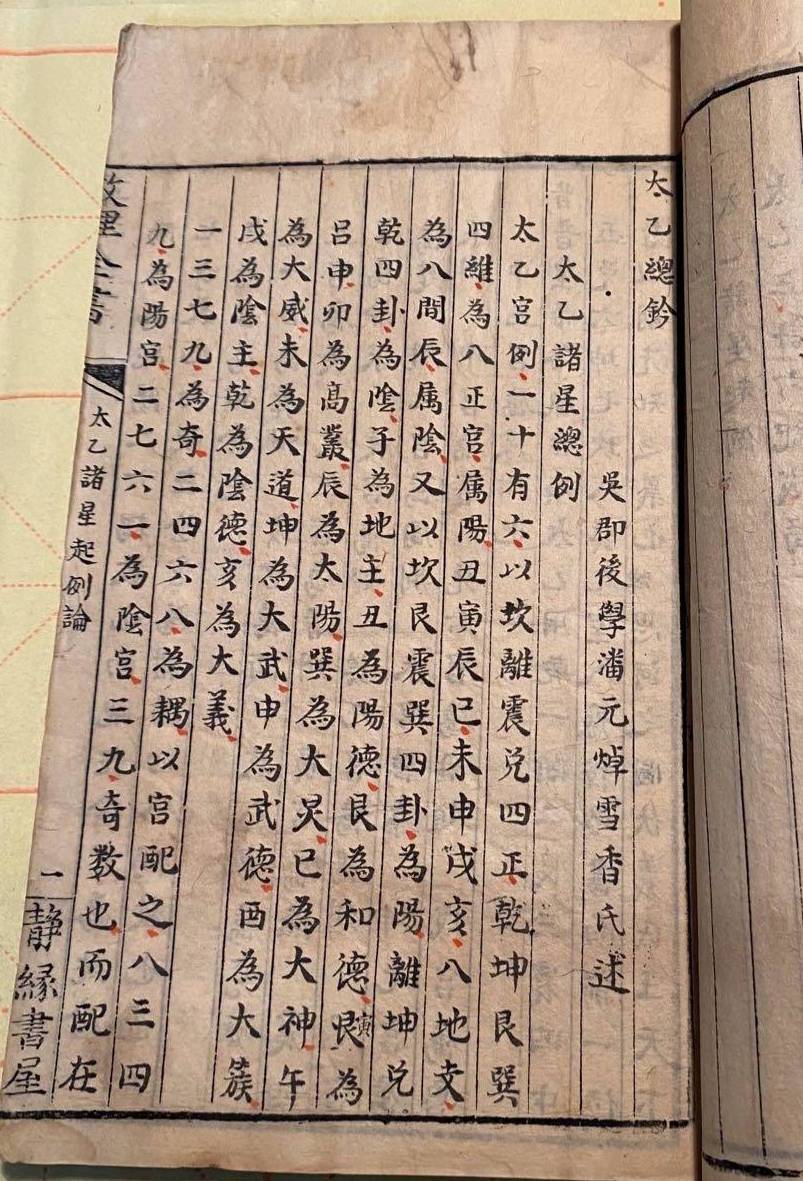 太乙總鈐
吳郡後學潘元焯雪香氏述
太乙諸星總例
太乙宮例一十有六以坎離震兌四正乾坤艮巽
四維為八正宮屬陽丑寅辰巳未申戌亥八地支
為八間辰屬陰又以坎艮震巽四卦為陽離坤兌
乾四卦為陰子為地主丑為陽德艮為和德寅為
呂申卯為高叢辰為太陽巽為大炅巳為大神午
為大威未為天道坤為大武申為武德酉為大簇
戌為陰主乾為陰德亥為大義
一三七九為奇二四六八為耦以宮配之八三四
九為陽宮二七六一為陰宮三九奇數也而配在
數理全書
太乙諸星起例論
一
靜緣書屋